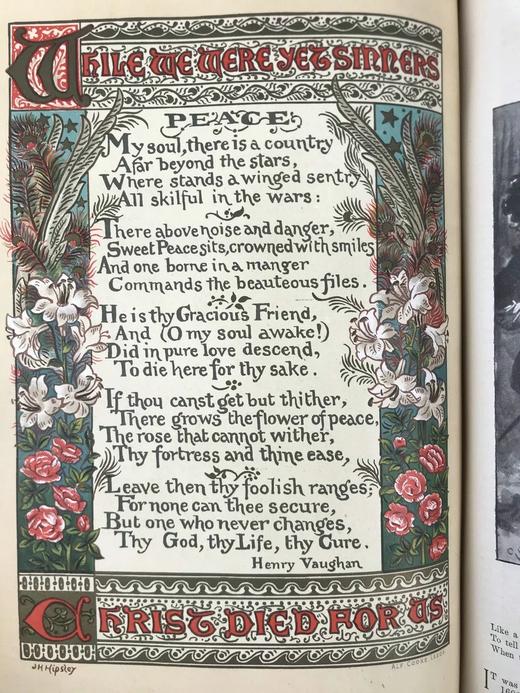 WHILE WE WERE YET SINNERS
PEACE
My soul, there is a country
Afar beyond the stars,
Where stands a winged sentry
All skilful in the wars:
There above noise and danger,
Sweet Peace sits, crowned with smiles
And one borne in a manger
Commands the beauteous files.
He is thy Gracious Friend,
And (O my soul awake!)
Did in pure love descend,
To die here for thy sake.
If thou canst get but thither,
There grows the flower of peace,
The rose that cannot wither,
Thy fortress and thine ease,
Leave then thy foolish ranges;
For none can thee secure,
But one who never changes,
Thy God, thy Life, thy Cure.
Henry Vaughan
CHRIST DIED FOR US
JH Hipsley
ALF COOKE LEEDS
Like a
To tell
When
IT was